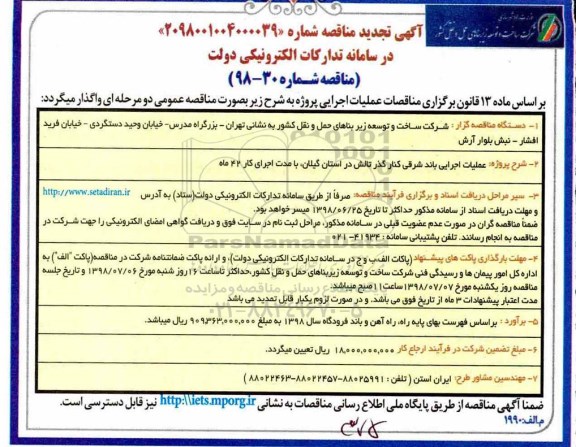 آگهی تجدید مناقصه شماره «۲۰۹۸۰۰۱۰۰۴۰۰۰۰۳۹»
در سامانه تدارکات الکترونیکی دولت
(مناقصه شماره ۳۰-۹۸)
بر اساس ماده ۱۳ قانون برگزاری مناقصات عملیات اجرایی پروژه به شرح زیر بصورت مناقصه عمومی دو مرحله ای واگذار میگردد:
۱- دستگاه مناقصه گزار: شرکت ساخت و توسعه زیر بناهای حمل و نقل کشور به نشانی تهران - بزرگراه مدرس- خیابان وحید دستگردی - خیابان فرید
افشار - نبش بلوار آرش
۲- شرح پروژه: عملیات اجرایی باند شرقی کنار گذر تالش در استان گیلان، با مدت اجرای کار ۴۲ ماه
۳- سیر مراحل دریافت اسناد و برگزاری فرآیند مناقصه: صرفاً از طریق سامانه تدارکات الکترونیکی دولت(ستاد) به آدرس http://www.setadiran.ir
و مهلت دریافت اسناد از سامانه مذکور حداکثر تا تاریخ ۱۳۹۸/۰۶/۲۵ میسر خواهد بود.
ضمناً مناقصه گران در صورت عدم عضویت قبلی در سامانه مذکور، مراحل ثبت نام در سایت فوق و دریافت گواهی امضای الکترونیکی را جهت شرکت در
مناقصه به انجام رسانند. تلفن پشتیبانی سامانه: ۴۱۹۳۴-۰۲۱
۴- مهلت بارگذاری پاکت های پیشنهاد (پاکات الف، ب و ج در سامانه تدارکات الکترونیکی دولت)، و ارائه پاکت ضمانتنامه شرکت در مناقصه(پاکت "الف") به
اداره کل امور پیمان ها و رسیدگی فنی شرکت ساخت و توسعه زیربناهای حمل و نقل کشور، حداکثر تا ساعت ۱۶ روز شنبه مورخ ۱۳۹۸/۰۷/۰۶ و تاریخ جلسه
مناقصه روز یکشنبه مورخ ۱۳۹۸/۰۷/۰۷ ساعت ۱۱ صبح میباشد.
مدت اعتبار پیشنهادات ۳ ماه از تاریخ فوق می باشد. و در صورت لزوم یکبار قابل تمدید می باشد
۵- برآورد: براساس فهرست بهای پایه راه، راه آهن و باند فرودگاه سال ۱۳۹۸ به مبلغ ۹۰۹,۳۶۳,۰۰۰,۰۰۰ ریال میباشد.
۶- مبلغ تضمین شرکت در فرآیند ارجاع کار ۱۸,۰۰۰,۰۰۰,۰۰۰ ریال تعیین میگردد.
۷- مهندسین مشاور طرح: ایران استن ( تلفن: ۸۸۰۲۵۹۹۱-۸۸۰۲۲۴۵۷-۸۸۰۲۲۴۶۳ )
ضمناً آگهی مناقصه از طریق پایگاه ملی اطلاع رسانی مناقصات به نشانی http:\\iets.mporg.ir نیز قابل دسترسی است.
م.الف: ۱۹۹۰